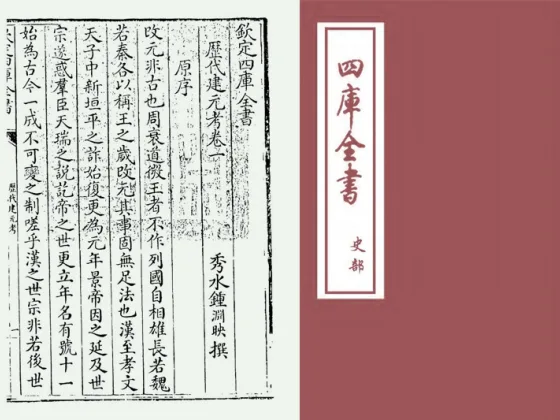 欽定四庫全書
歷代建元考卷一
秀水鍾淵映撰
原序
改元非古也周衰道微王者不作列國自相雄長若魏
若秦各以稱王之歲改元其事固無足法也漢至孝文
天子中新垣平之詐始復更為元年景帝因之延及世
宗遂惑羣臣天瑞之說訖帝之世更立年名有號十一
始為古今一成不可變之制嗟乎漢之世宗非若後世
歷代建元考
四庫全書
史部